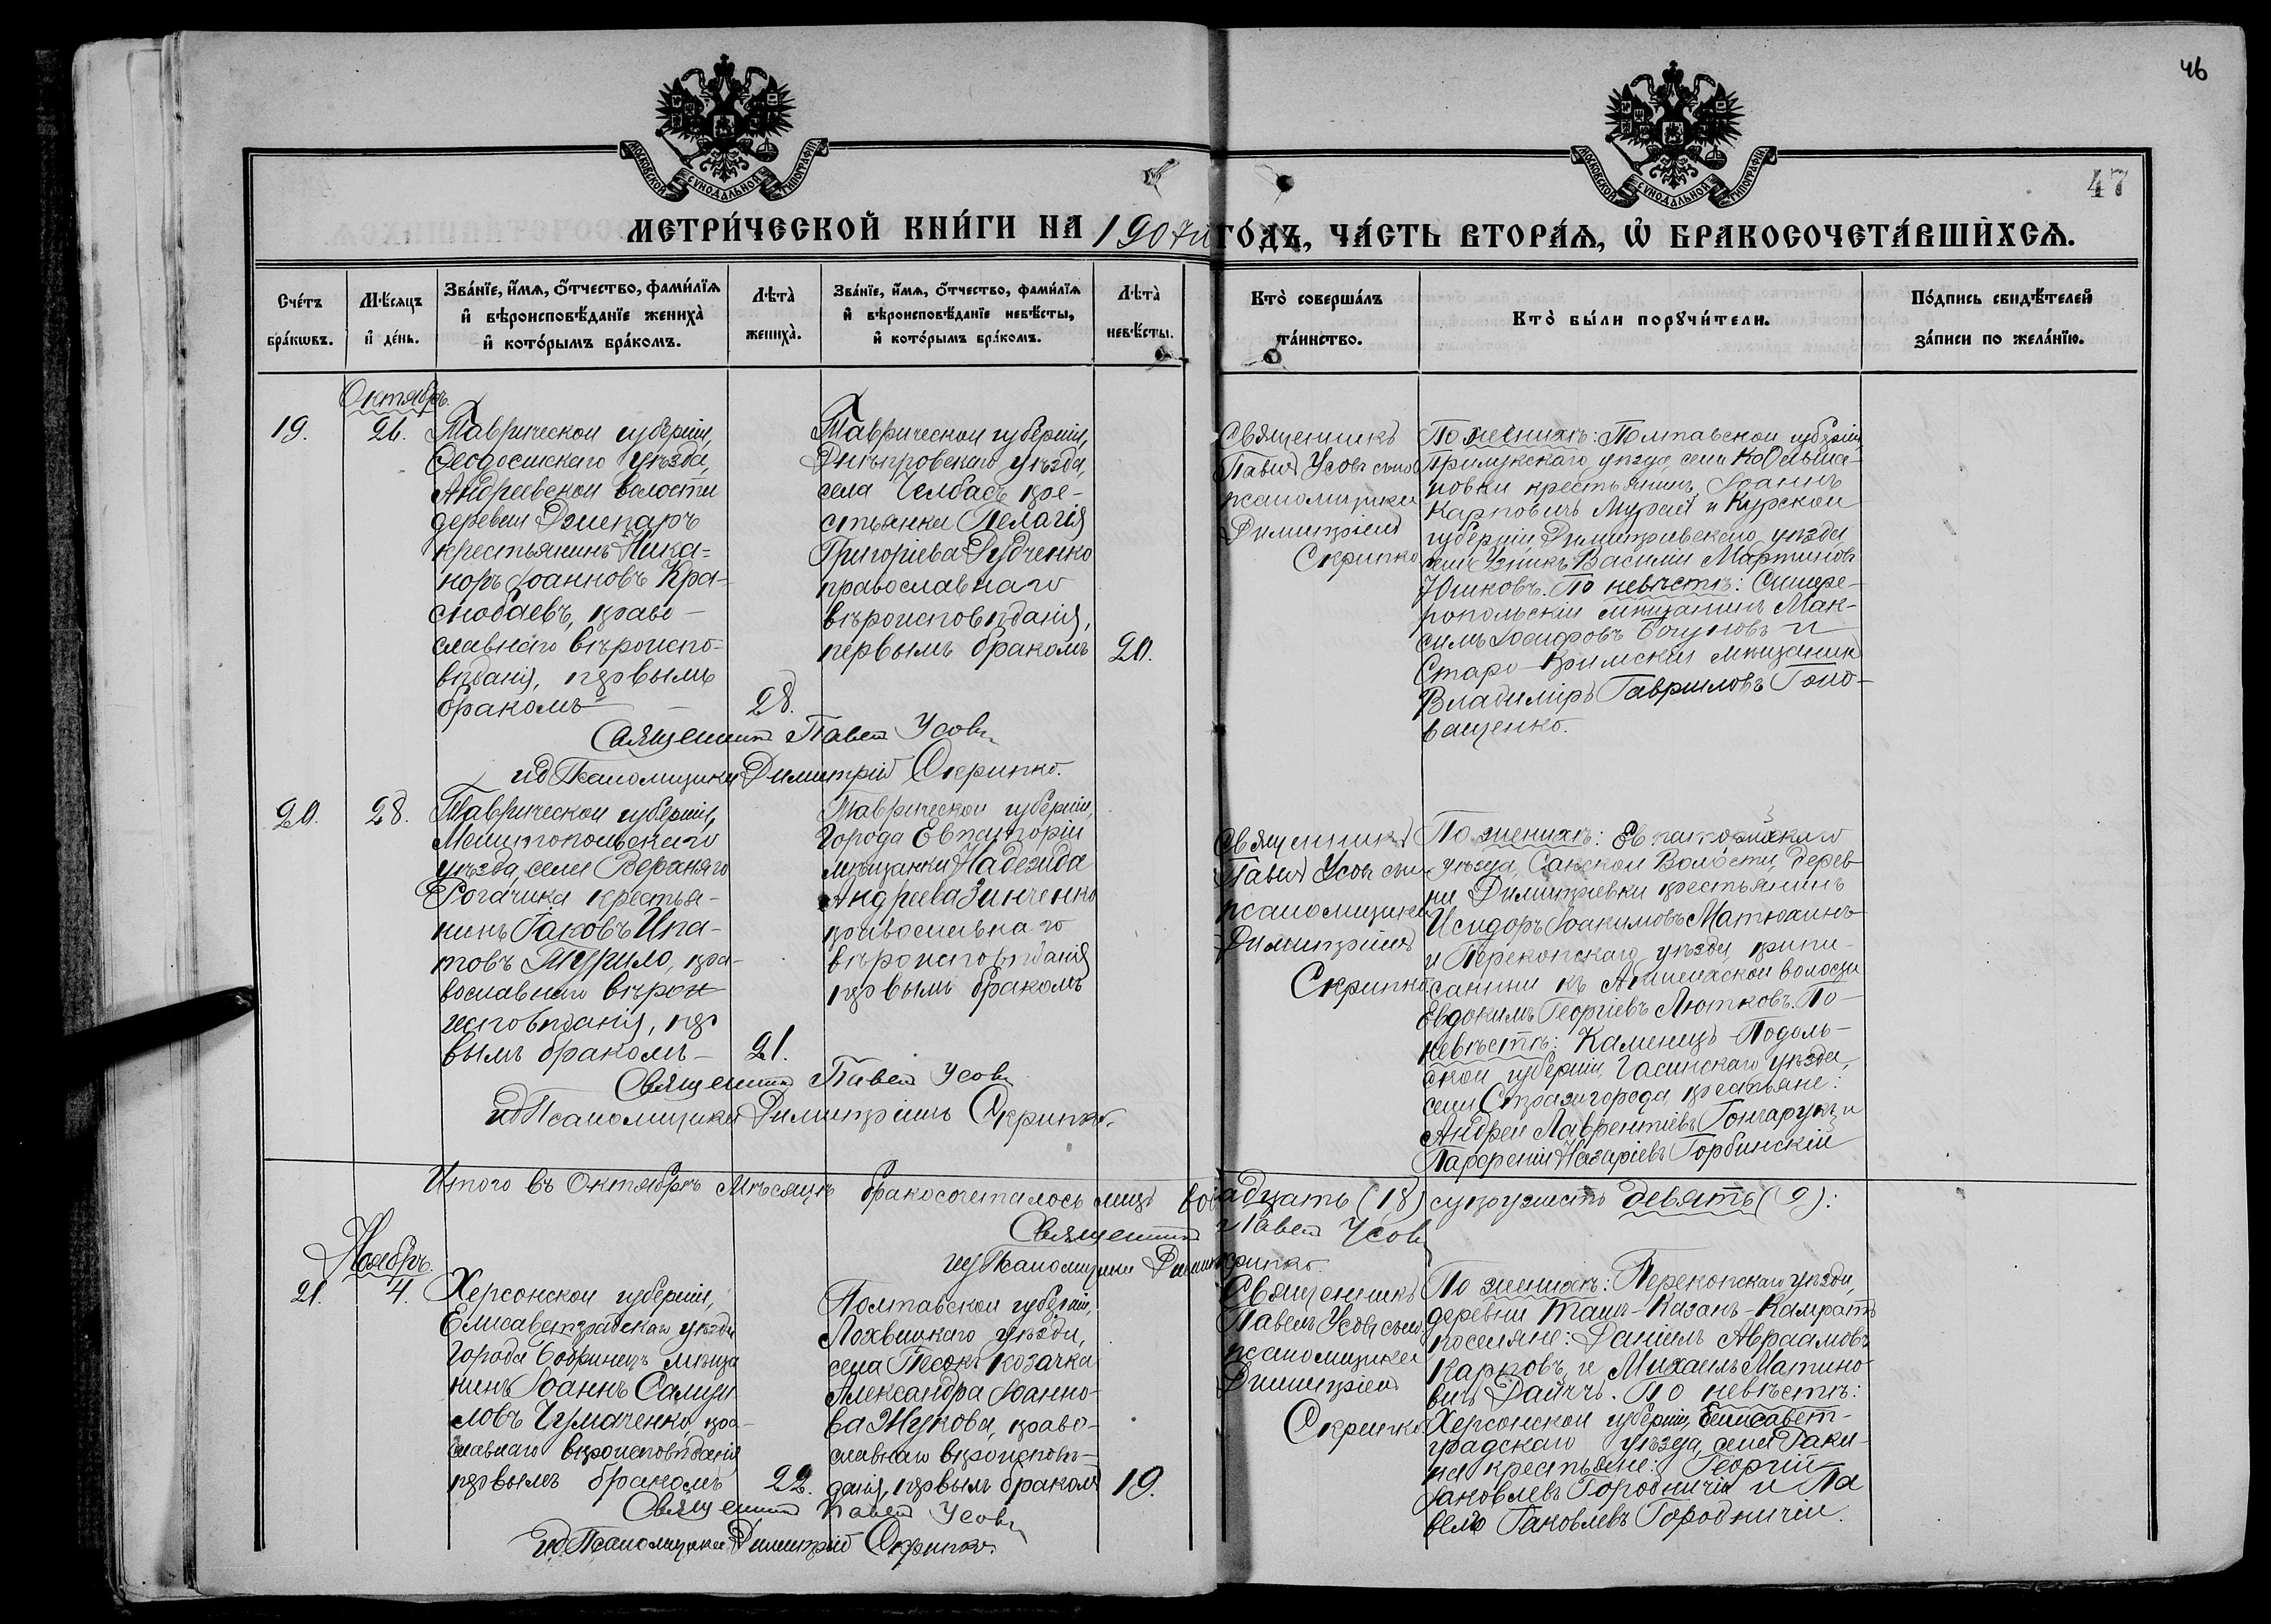 46
47
МОСКОВСКОЙ СѴНОДАЛЬНОЙ ТИПОГРАФІИ
МОСКОВСКОЙ СѴНОДАЛЬНОЙ ТИПОГРАФІИ
МЕТРИ́ЧЕСКОЙ КНИ́ГИ НА 190 ГО́ДЪ, ЧА́СТЬ ВТОРА́Я, Ѡ БРАКОСОЧЕТА́ВШИХСЯ.
Сче́тъ бра́кѡвъ.
Мѣ́сяцъ и де́нь.
Зва́нїе, и́мя, о́тчество, фами́лїя
и вѣроисповѣ́данїе жениха̀
и кото́рымъ бра́комъ.
Лѣта̀ жениха̀.
Зва́нїе, и́мя, о́тчество, фами́лїя
и вѣроисповѣ́данїе невѣ́сты,
и кото́рымъ бра́комъ.
Лѣта̀ невѣ́сты.
Кто̀ соверша́лъ та́инство.
Кто̀ бы́ли порꙋчи́тели.
По́дпись свидѣ́телей за́писи по жела́нїю.
Октябрь.
19.
26.
Таврической губерніи,
Ѳеодосійскаго уѣзда,
Андреевской волости
деревни Джепаръ
крестьянинъ Ника-
норъ Іоанновъ Кра-
снобаевъ, право-
славнаго вѣроиспо-
вѣданія, первымъ
бракомъ
28.
Таврической губерніи,
Днѣпровскаго уѣзда,
села Челбасъ кре-
стьянка Пелагія
Григоріева Дудченко
православнаго
вѣроисповѣданія,
первымъ бракомъ
20.
Священникъ
Павелъ Усовъ съ и. д.
псаломщика
Димитріемъ
Скрипко
По женихѣ: Полтавской губерніи,
Прилукскаго уѣзда, села
крестьянинъ Іоаннъ
Карповичъ Мурай и Курской
губерніи Димитріевскаго уѣзда
села Василій Мартиновъ
Юшковъ. По невѣстѣ: Симфе-
ропольскій мѣщанинъ Мак-
симъ Іосифовъ и
Старо-Крымскій мѣщанинъ
Владиміръ Гавриловъ Голо-
ващенко.
Священникъ Павелъ Усовъ
ид Псаломщика Димитрій Скрипко.
20.
28.
Таврической губерніи,
Мелитопольскаго
уѣзда, села Верхняго
Рогачика крестья-
нинъ Іаковъ Ипа-
товъ Шурило, пра-
вославнаго вѣрои-
исповѣданія, пер
вымъ бракомъ
21.
Таврической губерніи,
Города Евпаторіи
мѣщанка Надежда
Андреева Зинченко
православнаго
вѣроисповѣданія
первымъ бракомъ
Священникъ
Павелъ Усовъ съ и.
псаломщика
Димитріемъ
Скрипко
По женихѣ: Евпаторійскаго
уѣзда, Сакской Волости, дерев-
ни Димитріевки крестьянинъ
Исидоръ Іоакимовъ Матюхинъ
и Перекопскаго уѣзда, припи-
санный къ волости
Евдокимъ Георгіевъ Лютковъ. По
невѣстѣ: Каменецъ-Подоль-
ской губерніи, Гасинскаго уѣзда,
села Стражгорода, крестьяне:
Андрей Лаврентіевъ Гончарукъ и
Парфеній Назаріевъ Горбинскій
Священникъ Павелъ Усовъ
ид Псаломщика Димитрій Скрипко.
Итого въ Октябрѣ мѣсяцѣ бракосочеталось лицъ (18) супружествъ девять (9):
Священникъ Павелъ Усовъ
ид Псаломщика Скрипко.
Ноябрь.
21.
4.
Херсонской губерніи,
Елисаветградскаго уѣзда
города Бобринецъ мѣща
нинъ Іоаннъ Самуи
ловъ Чумаченко, пра-
славнаго вѣроисповѣданія
первымъ бракомъ
22.
Полтавской губерніи,
Лохвицкаго уѣзда,
села Песокъ козачка
Александра Іоанно-
ва Жукова, право-
славнаго вѣроисповѣ-
данія, первымъ бракомъ
19.
Священникъ
Павелъ Усовъ съ и. д.
псаломщика
Димитріемъ
Скрипко
По женихѣ: Перекопскаго уѣзда,
деревни Ташъ-Казанъ-Кампратъ
поселяне: Даніилъ Авраамовъ
Карковъ, и Михаилъ Матино-
вичъ. По невѣстѣ:
Херсонской губерніи, Елисавет-
градскаго уѣзда, села
крестьяне: Георгій
Іаковлевъ Городничій и Па
велъ Іаковлевъ Городничій.
Священникъ Павелъ Усовъ
ид. Псаломщика Димитрій Скрипко.